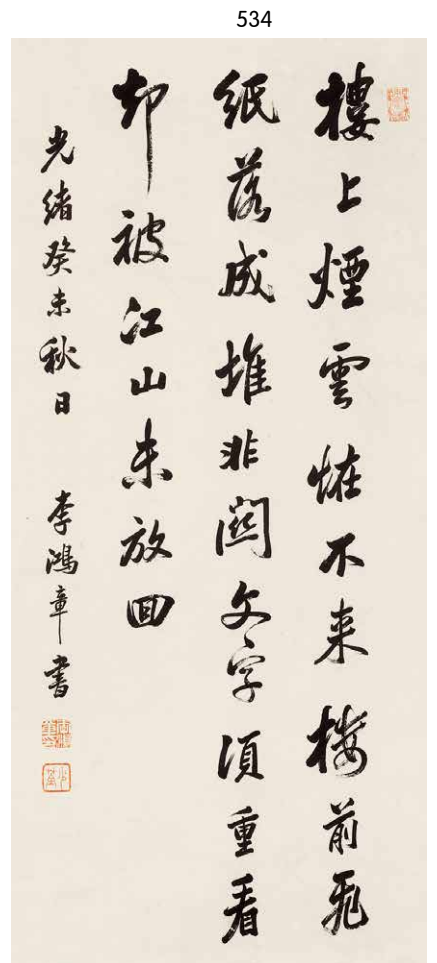 534
樓上煙雲恠不来楼前飛
紙落成堆非關文字湏重看
却被江山未放回
光緒癸未秋日 李鴻章書